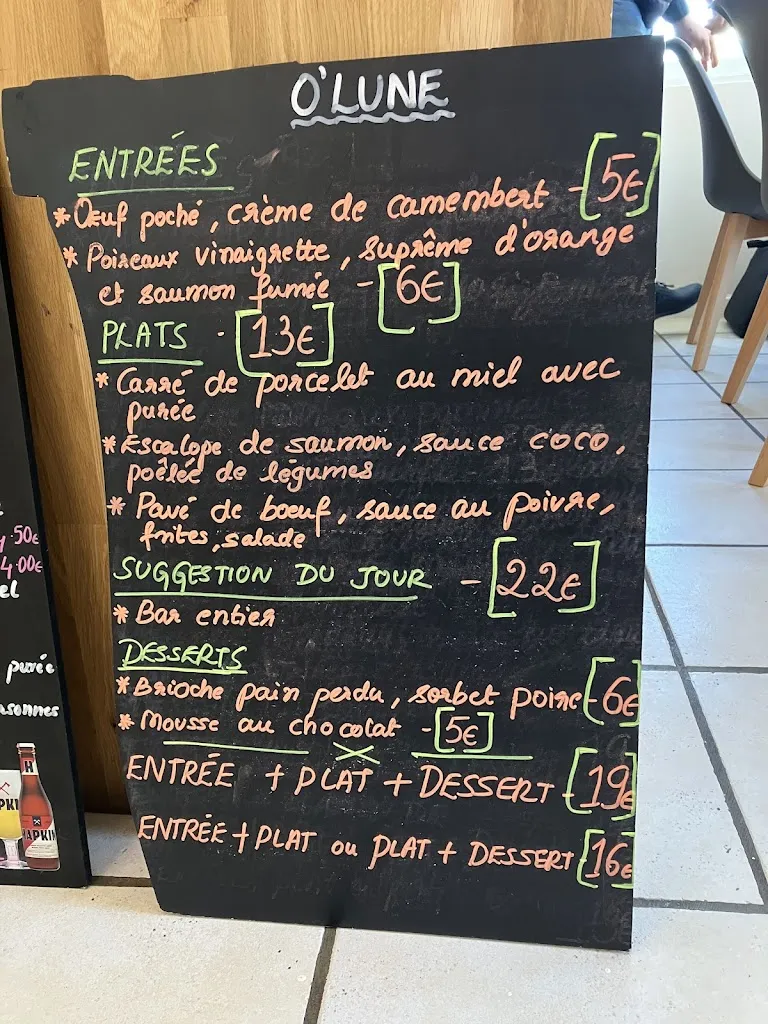 O'LUNE
ENTRÉES
* Œuf poché, crème de camembert - [5€]
* Poireaux vinaigrette, suprême d'orange
et saumon fumée - [6€]
PLATS - [13€]
* Carré de porcelet au miel avec
purée
* Escalope de saumon, sauce coco,
poêlée de légumes
* Pavé de boeuf, sauce au poivre,
frites, salade
SUGGESTION DU JOUR - [22€]
* Bar entier
DESSERTS
* Brioche pain perdu, sorbet poire - [6€]
* Mousse au chocolat - [5€]
ENTRÉE + PLAT + DESSERT - [19€]
ENTRÉE + PLAT ou PLAT + DESSERT [16€]
50€
4.00€
el
purée
sonnes